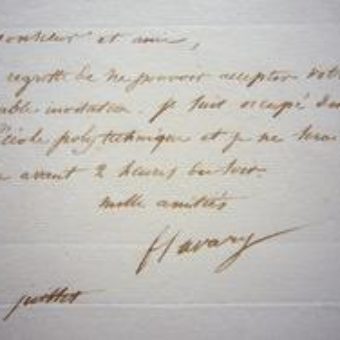 Monsieur et ami,
regrette de ne pouvoir accepter votre
able invitation. Je suis occupé
l'école polytechnique et je ne serai
avant 2 heures
mille amitiés
f Savary
juillet